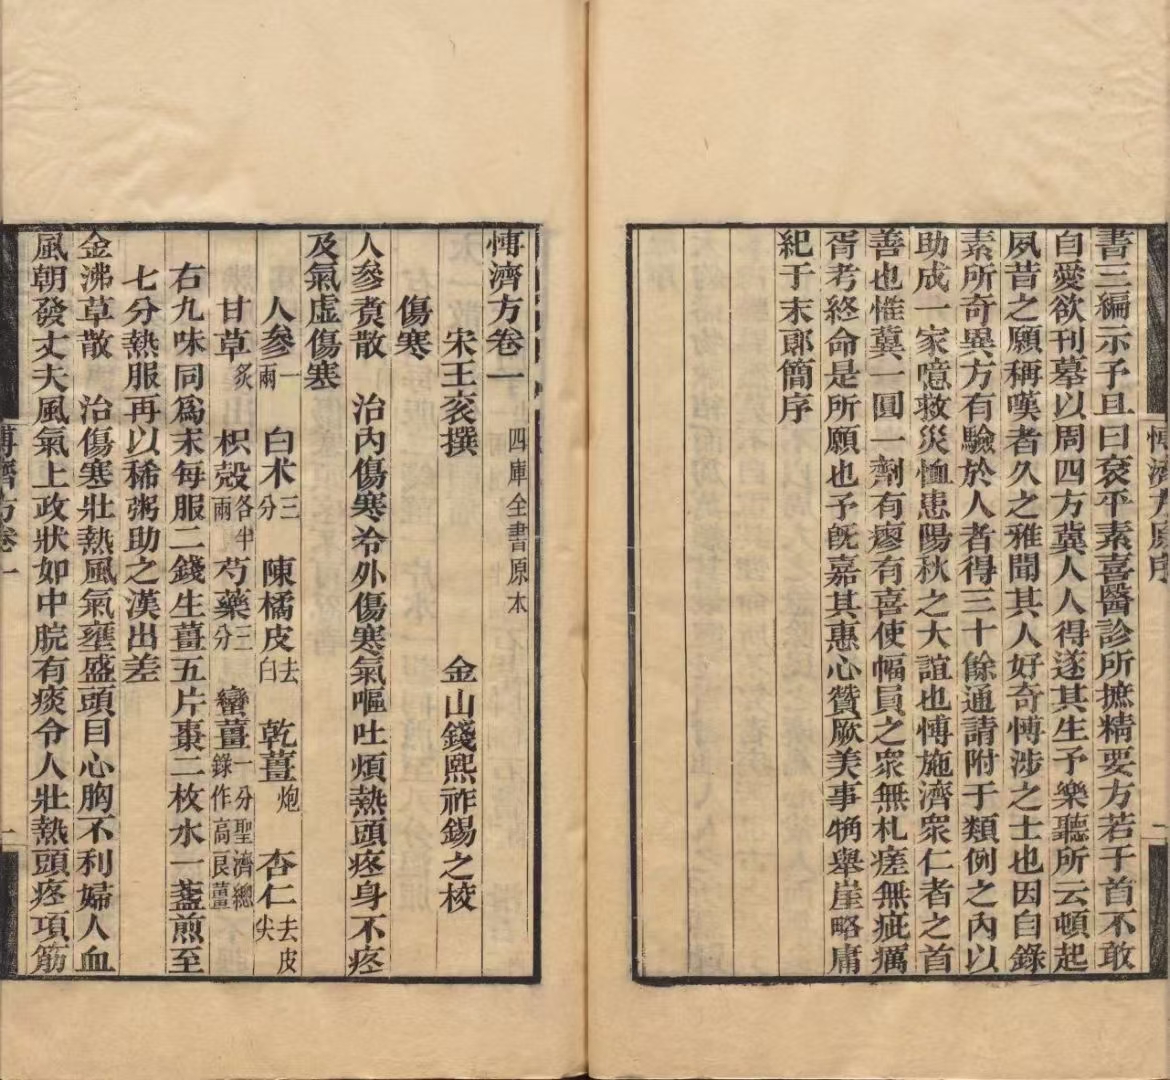 愽濟方原序
一
書三編示予且曰袞平素喜醫診所摭精要方若干首不敢
自愛欲刊摹以周四方冀人人得遂其生予樂聽所云頓起
夙昔之願稱嘆者久之雅聞其人好奇愽涉之士也因自錄
素所奇異方有驗於人者得三十餘通請附于類例之內以
助成一家噫救災恤患陽秋之大誼也愽施濟衆仁者之首
善也惟冀一圓一劑有瘳有喜使幅員之衆無札瘥無疵癘
胥考終命是所願也予旣嘉其惠心贊厥美事觕舉崖略庸
紀于末郎簡序
愽濟方卷一 四庫全書原本
宋王袞撰 金山錢熙祚錫之校
傷寒
人參煑散 治內傷寒冷外傷寒氣嘔吐煩熱頭疼身不疼
及氣虛傷寒
人參一兩 白朮三分 陳橘皮去白 乾薑炮 杏仁去皮尖
甘草炙 枳殼各半兩 芍藥三分 蠻薑一分聖濟總錄作高良薑
右九味同爲末每服二錢生薑五片棗二枚水一盞煎至
七分熱服再以稀粥助之漢出差
金沸草散 治傷寒壯熱風氣壅盛頭目心胸不利婦人血
風朝發丈夫風氣上政狀如中脘有痰令人壯熱頭疼項筋
愽濟方卷一
一